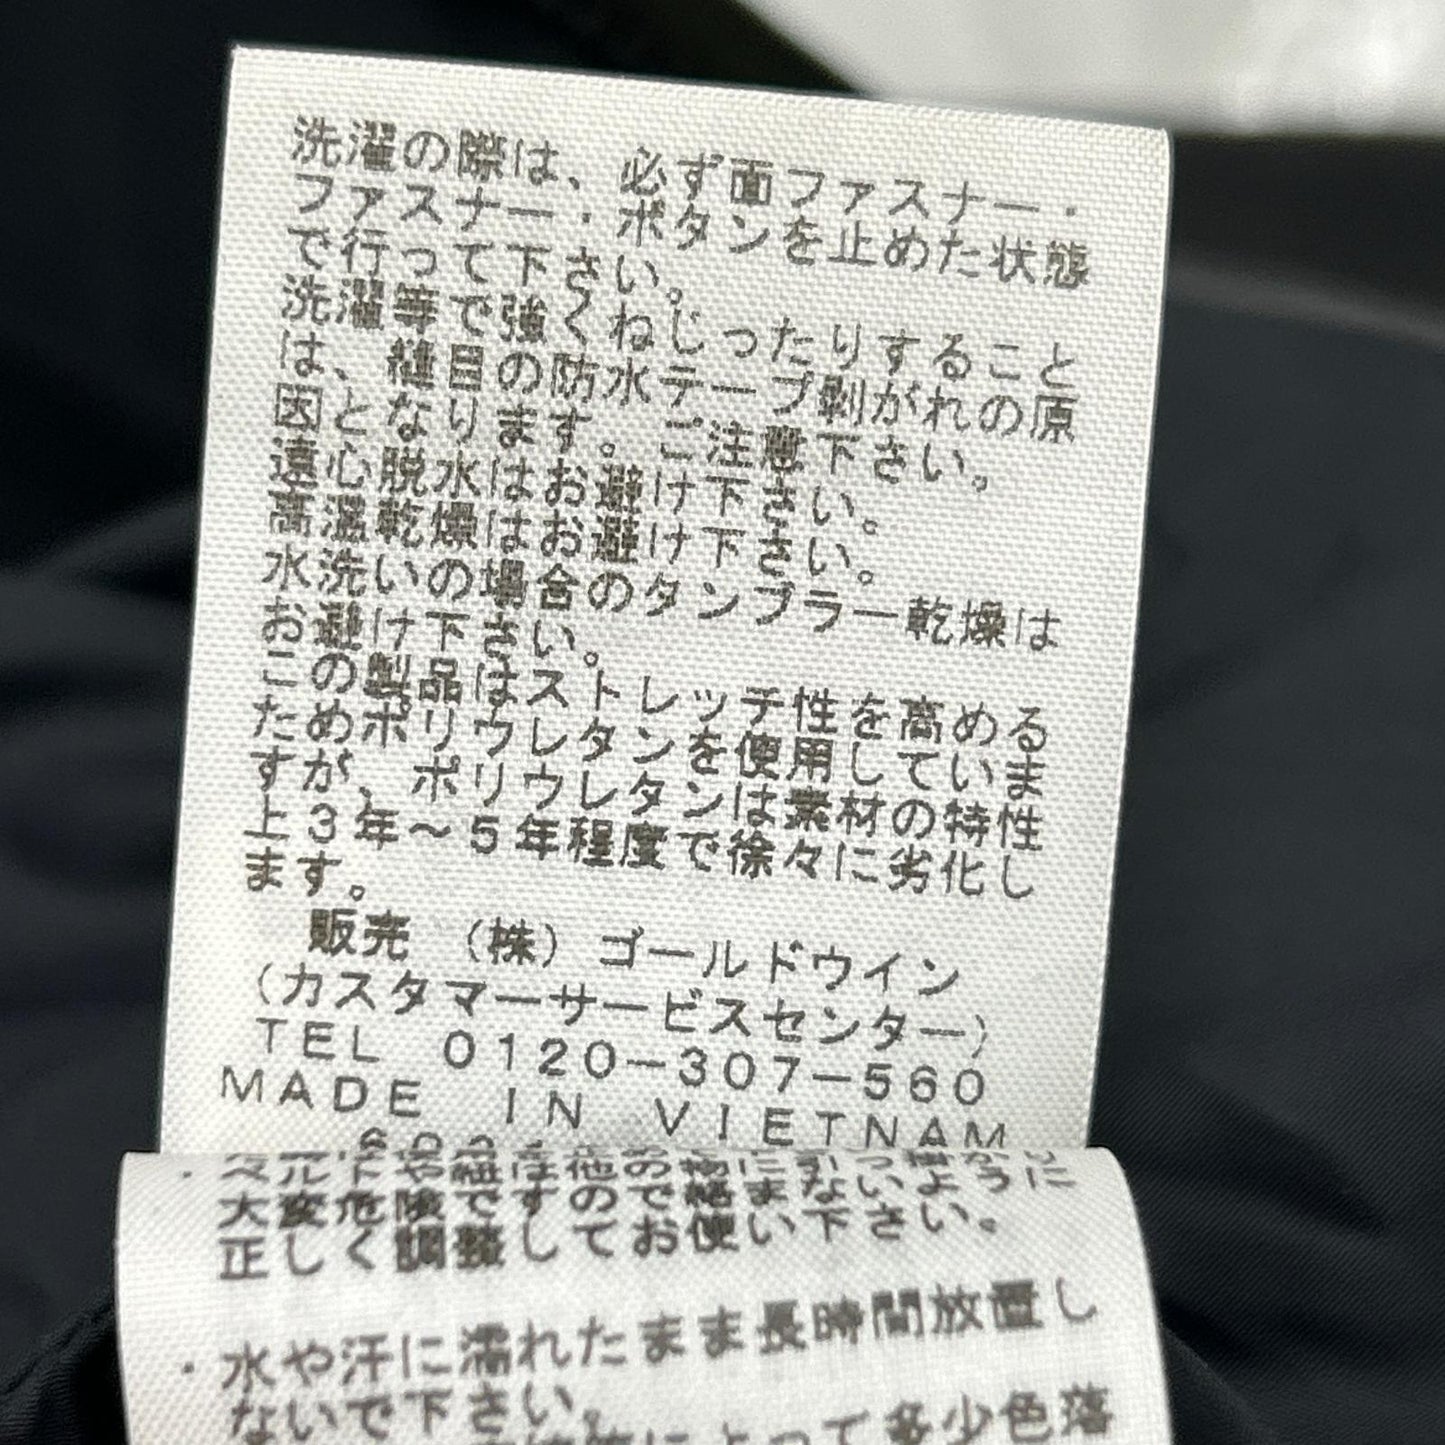 洗濯の際は、必ず面ファスナー・
ファスナー・ボタンを止めた状態
で行って下さい。
洗濯等で強くねじったりすること
は、縫目の防水テープ剥がれの原
因となります。ご注意下さい。
遠心脱水はお避け下さい。
高温乾燥はお避け下さい。
水洗いの場合のタンブラー乾燥は
お避け下さい。
この製品はストレッチ性を高める
ためポリウレタンを使用していま
すが、ポリウレタンは素材の特性
上３年～５年程度で徐々に劣化し
ます。
販売 （株）ゴールドウイン
（カスタマーサービスセンター）
ＴＥＬ ０１２０－３０７－５６０
ＭＡＤＥ ＩＮ ＶＩＥＴＮＡＭ
大変危険ですので絡まないように
正しく調整してお使い下さい。
・水や汗に濡れたまま長時間放置し
ないで下さい。
によって多少色落